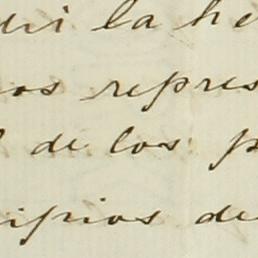 la he
os repres
de los p
ipios de